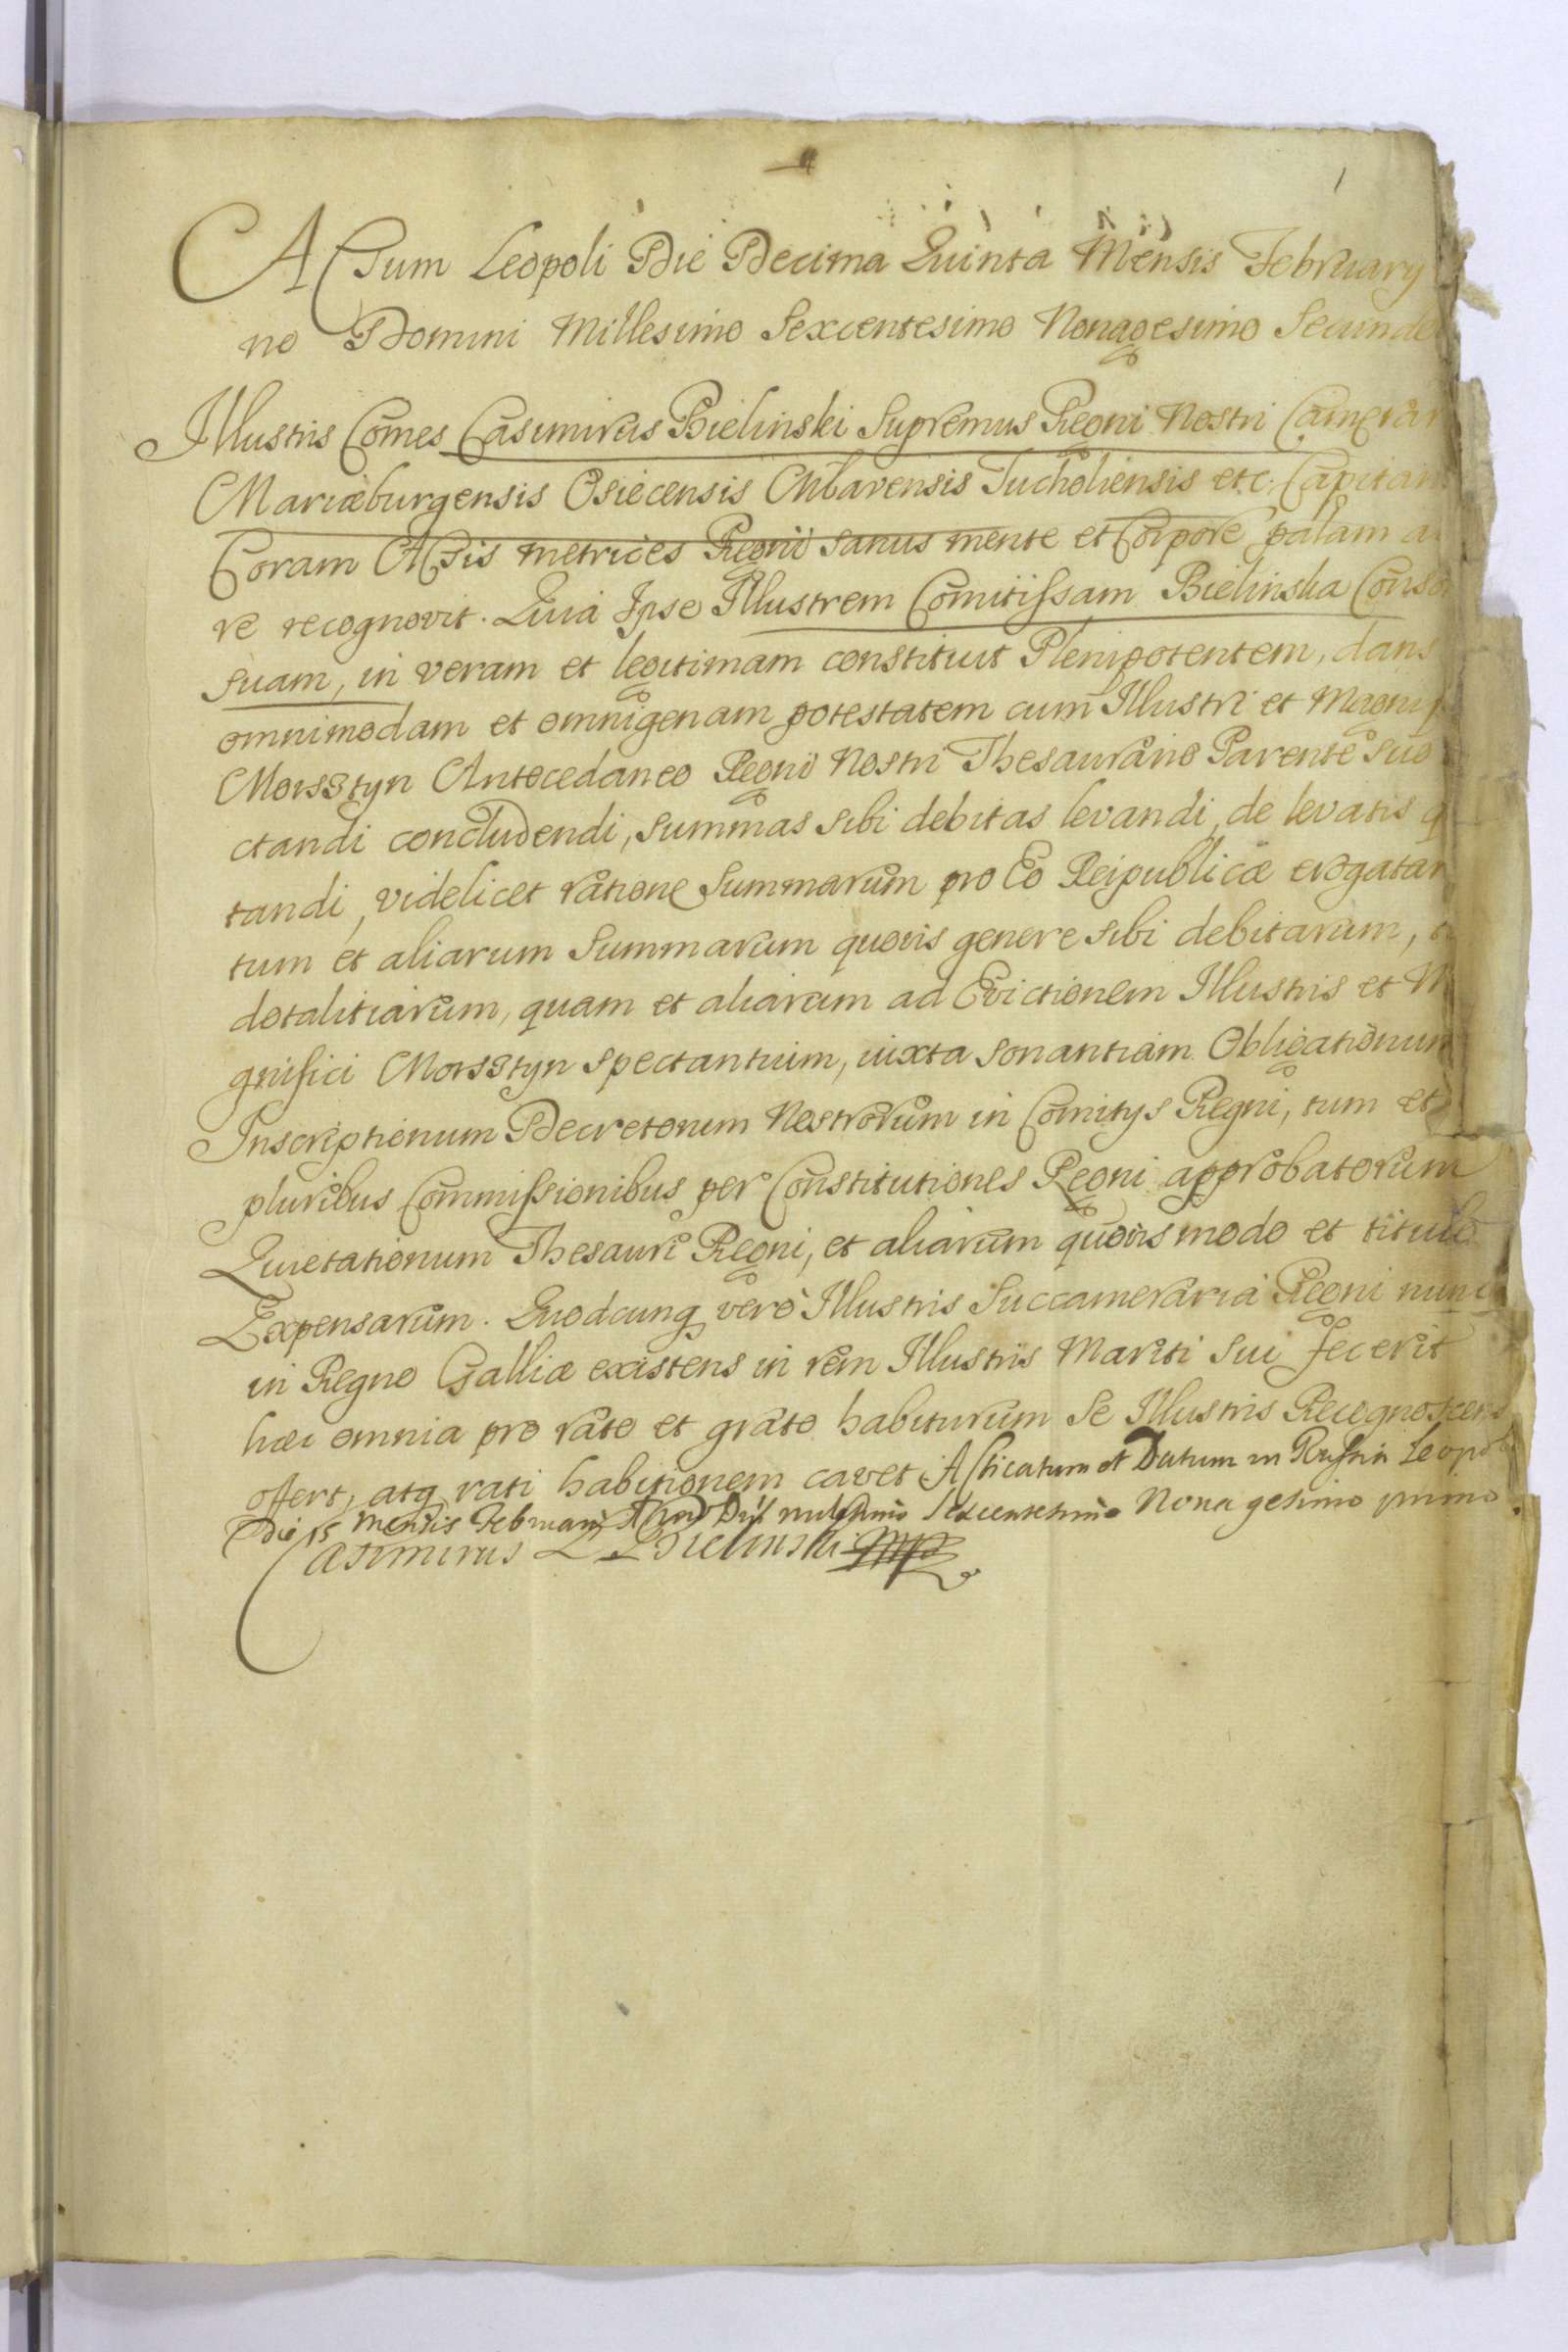 1
Actum Leopoli Die Decima Quinta Mensis February
no Domini Millesimo Sexcentesimo Nonagesimo Secundo
Illustris Comes Casimirus Bielinski Supremus Regni Nostri Camerar
Mariæburgensis Osiecensis Chlavensis Tucholiensis etc. Capitan
Coram Actis metrices Regni sanus mente et Corpore palam a
re recognovit. Quia Ipse Illustrem Comitissam Bielinska Conso
suam, in veram et legitimam constituit Plenipotentem, dans
omnimodam et omnigenam potestatem cum Illustri et Magnif
Morsstyn Antecedaneo Regni Nostri Thesaurario Parente Suo
ctandi concludendi, summas sibi debitas levandi, de levatis q
tandi, videlicet ratione Summarum pro Eo Reipublicæ erogatar
tum et aliarum Summarum quovis genere sibi debitarum, t
dotalitiarum, quam et aliarum ad Evictionem Illustris et M
gnifici Morsstyn spectantium, iuxta sonantiam Obligationum
Inscriptionum Decretorum Nostrorum in Comitys Regni, tum et
pluribus Commissionibus per Constitutiones Regni approbatorum
Quietationum Thesauri Regni, et aliarum quovis modo et titulo
Expensarum. Quodcunq vero Illustris Succameraria Regni nunc
in Regno Galliæ existens in rem Illustris Mariti Sui fecerit
hæc omnia pro rato et grato habiturum Se Illustris Recognoscens
offert, atq rati habitionem cavet Acticatum et Datum in Russia Leopoli
Die 15 Mensis Februarij Millesimo Sexcentesimo Nonagesimo primo.
Casimirus Bielinski mp